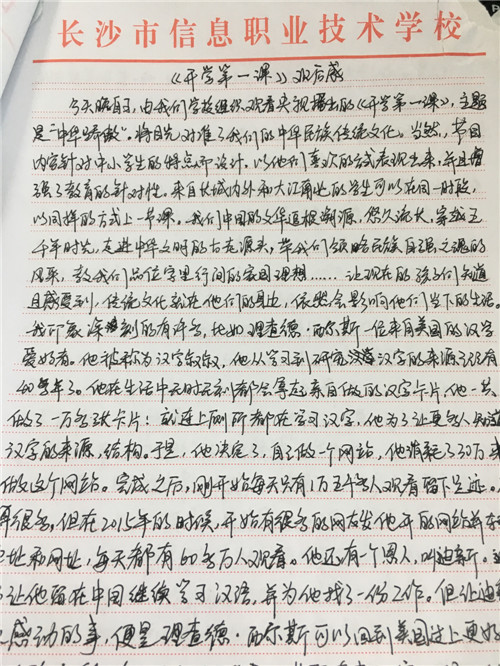 长沙市信息职业技术学校
《开学第一课》观后感
今天晚自习,由我们学校组织观看央视播出的《开学第一课》,主题
是"中华骄傲"。将目光对准了我们的中华民族传统文化。当然,节目
内容针对中小学生的特点而设计,以他们喜欢的方式表现出来,并且增
强了教育的针对性。来自长城内外和大江南北的学生可以在同一时段,
以同样的方式上一课。我们中国的文华追根溯源,悠久流长,穿越五
千年时光,走进中华文明的古老源头,带我们领略民族自强之魂的
风采,教我们品位字里行间的家国理想……让现在的孩子们知道
且感受到,传统文化就在他们的身边,依然会影响他们当下的生活。
我印象深刻的有许多,比如理查德·西尔斯一位来自美国的汉学
爱好者。他被称为汉字叔叔,他从学习到研究汉字的来源了已有
40多年了。他在生活中无时无刻都会拿起亲自做的汉字卡片,他一共
做了一万多张卡片:就连上厕所都在学习汉字,他为了让更多人
汉字的来源,结构。于是,他决定了,自己做一个网站,他消耗了30万
做这个网站。完成之后,刚开始每天只有1万5千多人观看留下足迹。
很多,但在2015年的时候,开始有很多的网友发他开的网站
址和网址,每天都有60多万人观看。他还有一个恩人,叫迪新。
了让他留在中国继续学习汉语,并为他找了一份工作。但让迪
感动的事,便是理查德·西尔斯可以回到美国过上更好